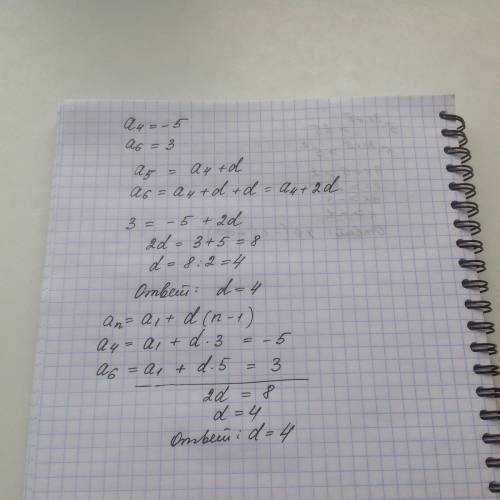 a₄ = -5
a₆ = 3
a₅ = a₄ + d
a₆ = a₄ + d + d = a₄ + 2d
3 = -5 + 2d
2d = 3 + 5 = 8
d = 8 : 2 = 4
Ответ: d = 4
aₙ = a₁ + d (n - 1)
a₄ = a₁ + d · 3 = -5
a₆ = a₁ + d · 5 = 3
2d = 8
d = 4
Ответ: d = 4